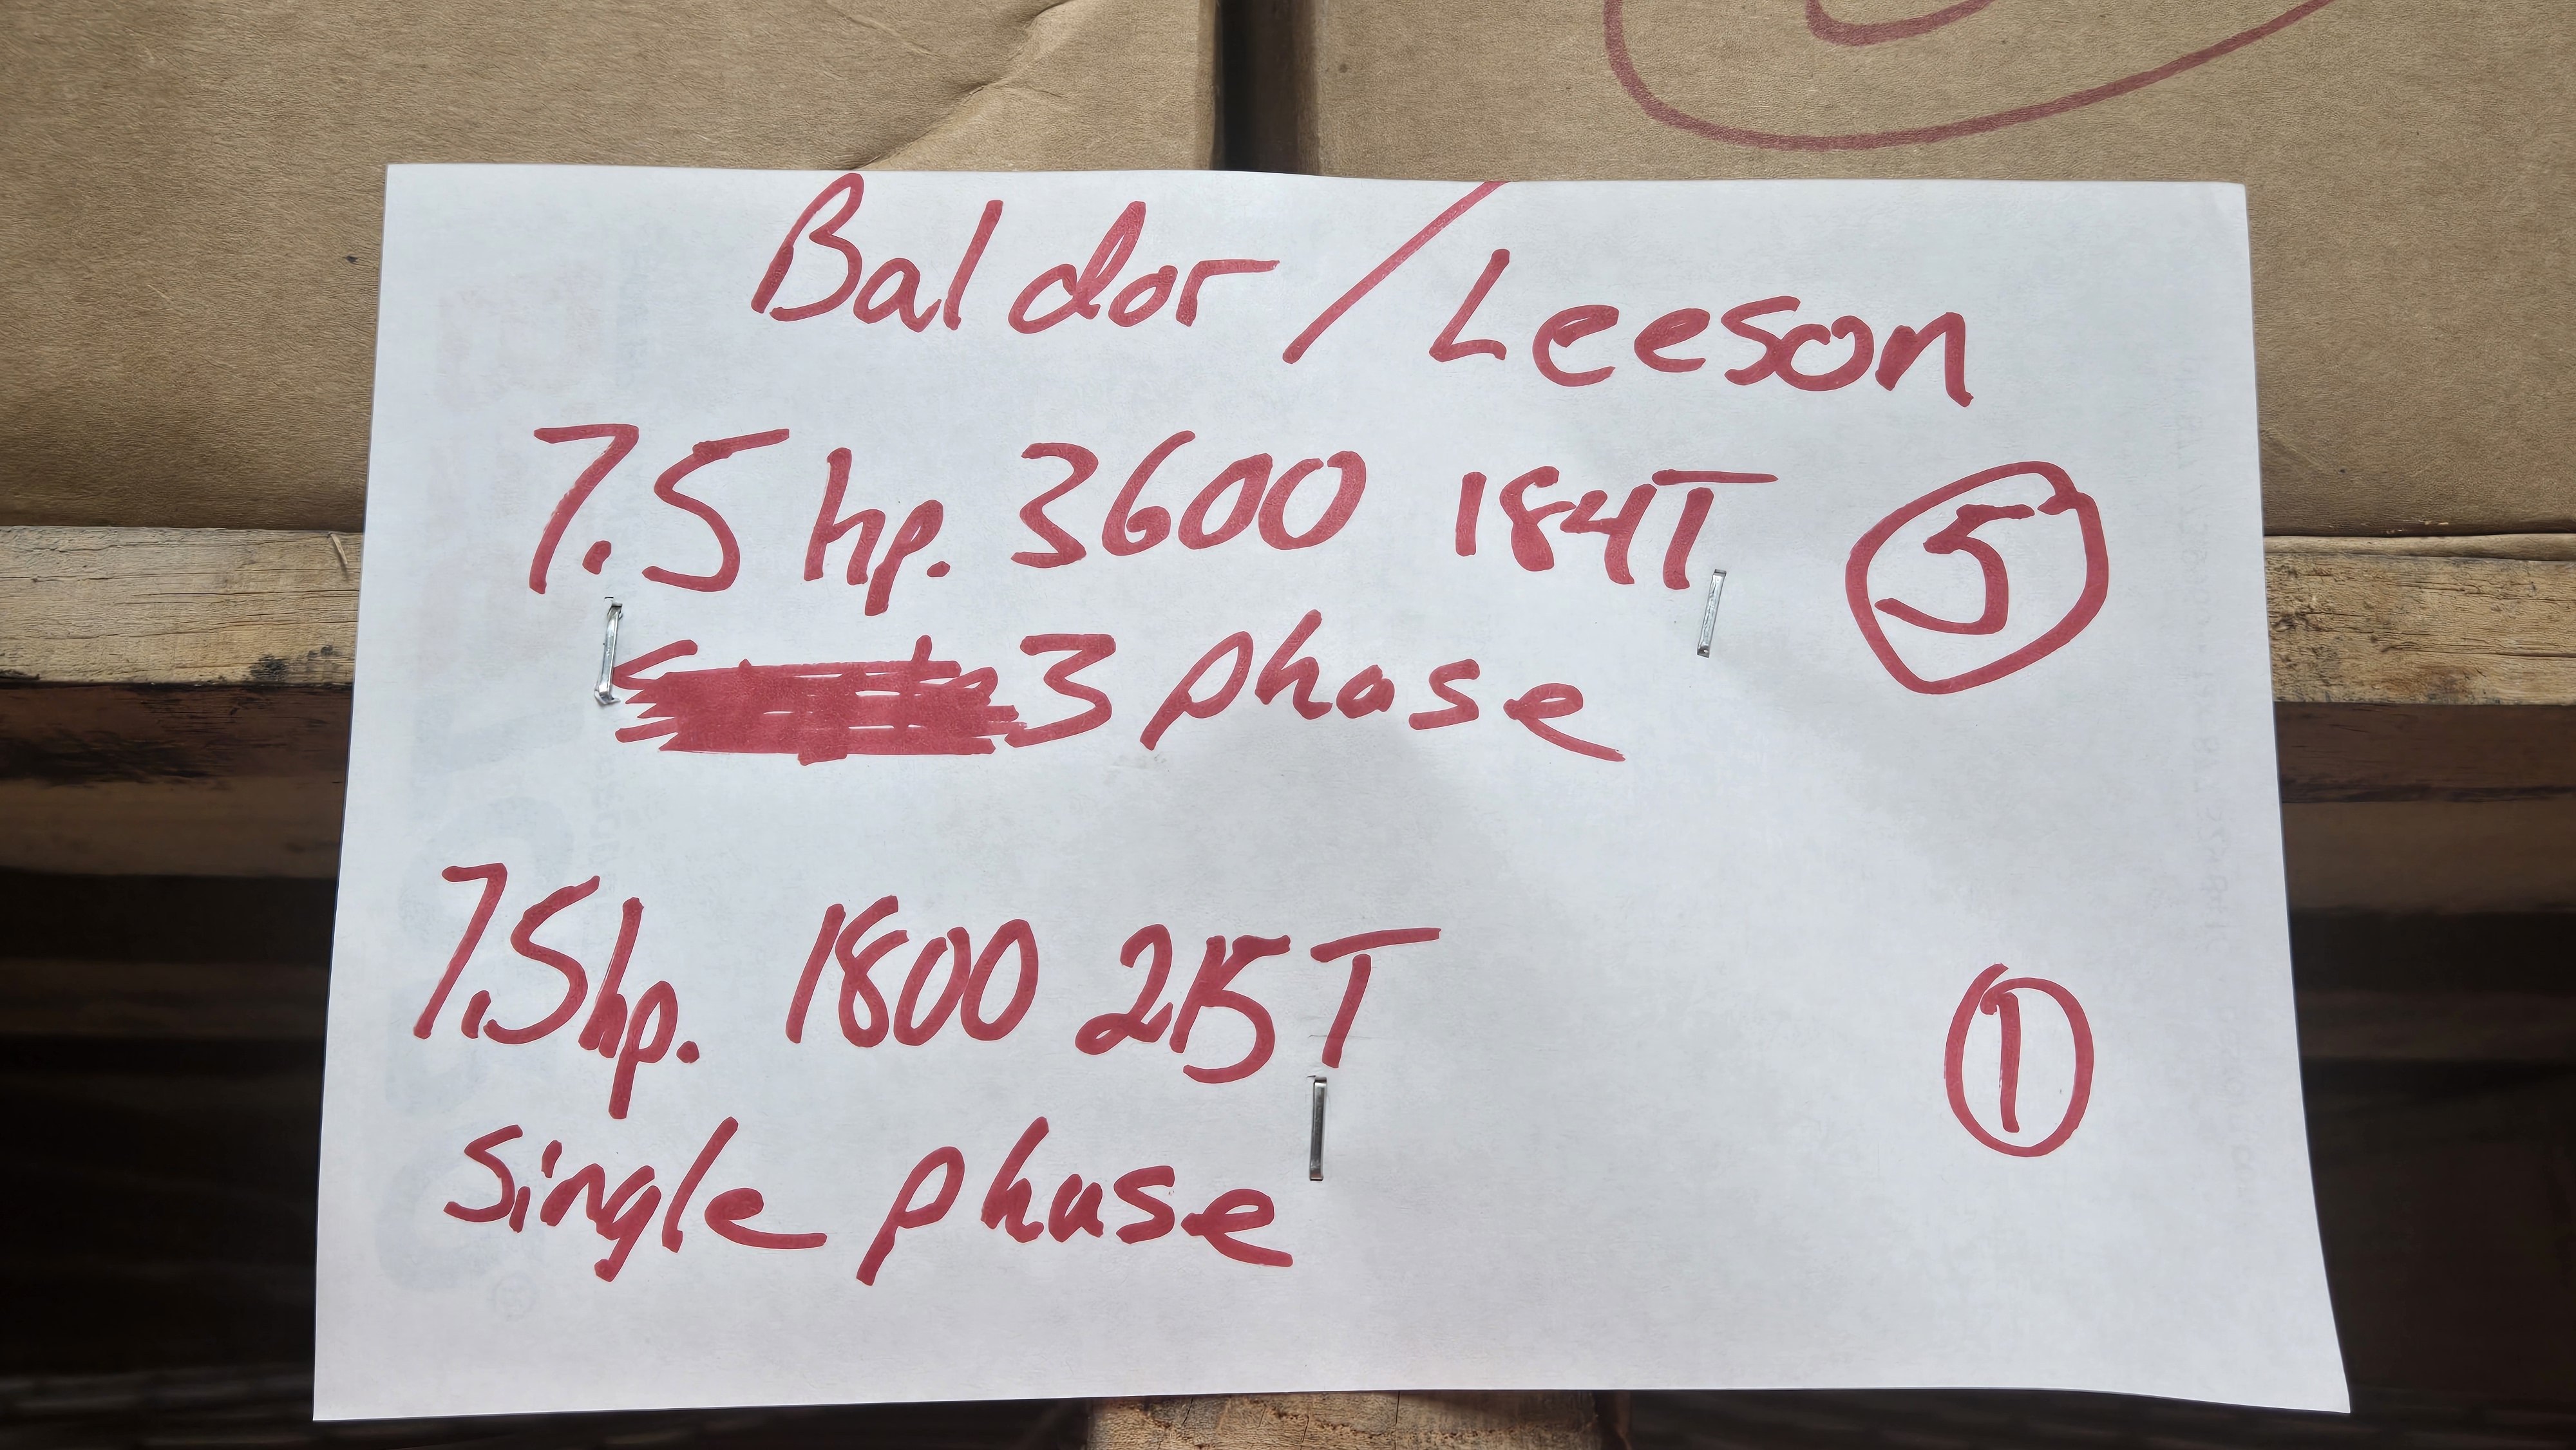 Baldor / Leeson
7.5 hp. 3600 184T 5
3 phase
7.5 hp. 1800 215T 1
single phase